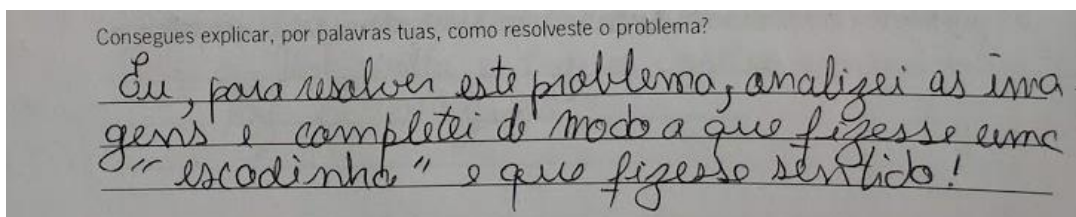 Consegues explicar, por palavras tuas, como resolveste o problema?
Eu, para resolver este problema, analizei as ima
gens e completei de modo a que fizesse uma
"escadinha" e que fizesse sentido!